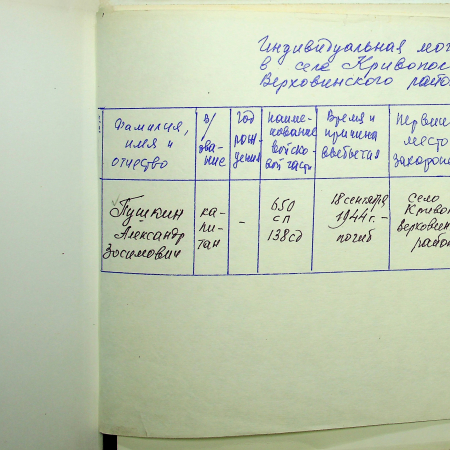 Индивидуальная мог
в селе Кривопос
Верховинского райо
Фамилия,
имя и
отчество
в/
зва-
ние
Год
рож-
дения
Наиме-
нование
войско-
вой части
Время и
причина
выбытия
Первич
место
захороне
Пушкин
Александр
Зосимович
ка-
пи-
тан
-
650
сп
138 сд
18 сентября
1944 г. -
погиб
село
Кривоп
Верховин
район